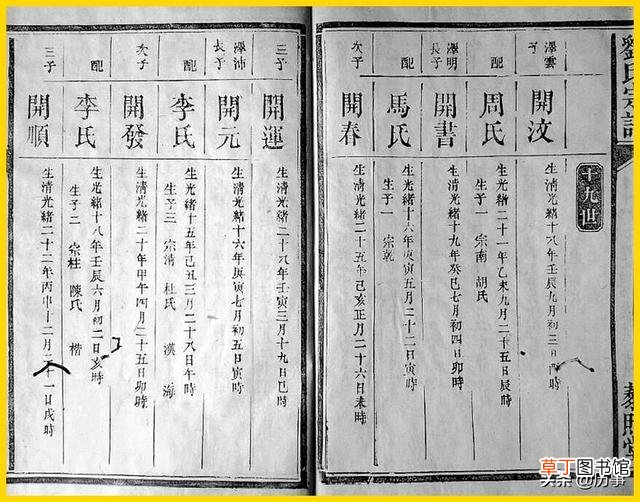 劉氏宗譜
十九世
澤雲子
開汶
生清光緒十八年壬辰九月初三日時
配
周氏
生光緒二十一年乙未九月二十五日辰時
生子一 宗南 胡氏
澤明長子
開書
生清光緒十九年癸巳七月初四日卯時
配
馬氏
生光緒十六年庚寅五月二十二日寅時
生子一 宗乾
次子
開春
生清光緒二十五年己亥正月二十六日未時
三子
開運
生清光緒二十八年壬寅三月十九日巳時
澤沛長子
開元
生清光緒十六年庚寅七月初五日寅時
配
李氏
生光緒十五年己丑三月二十八日午時
生子三 宗清 杜氏 漢 海
次子
開發
生清光緒二十年甲午四月二十五日卯時
配
李氏
生光緒十八年壬辰六月初二日亥時
生子二 宗柱 陳氏 楷
三子
開順
生清光緒二十二年丙申十二月二十一日戌時
草丁图书馆
头条 @历事